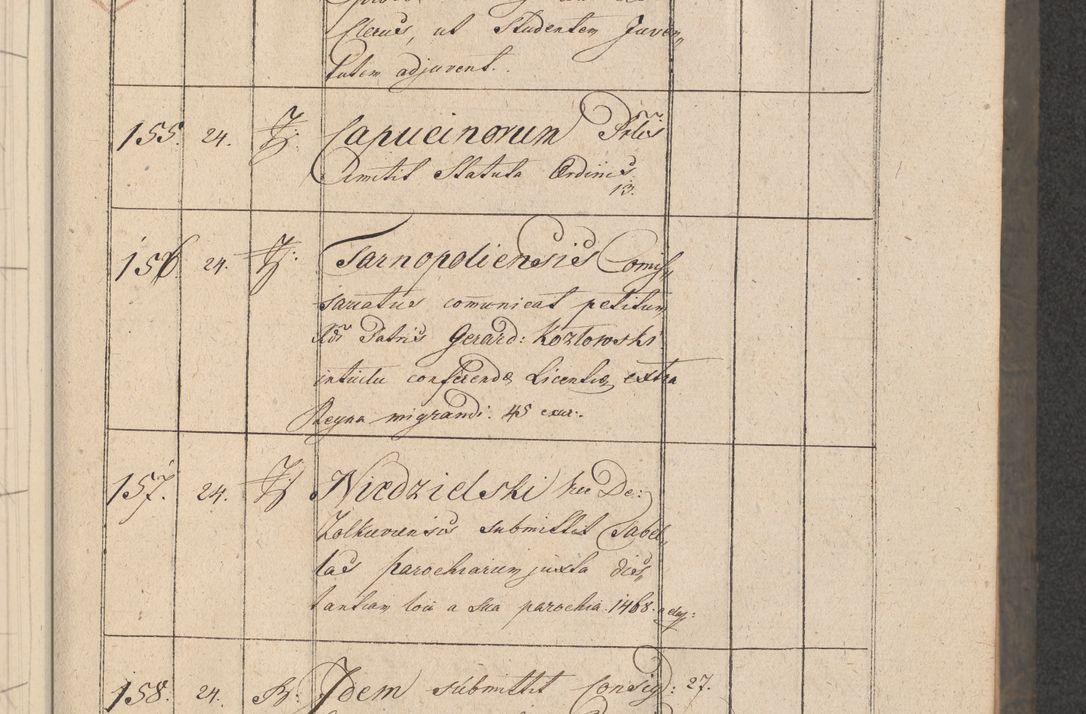 Clerus, ut Studentem Juven„
tutem adjuvent.
155. 24. Capucinorum
Statuta Ordinis
13.
156 24. Tarnopoliensis Comis„
sariatus comunicat petitum
Patris Gerard: Kozlowski
intuitu conferendæ Licentiæ extra
Regna migrandi. 45 exur.
157. 24. Niedzielski De:
Zolkiewiensis submittit Tabel„
las parochiarum juxta dis„
tantiam loci a sua parochia. 1468.
158. 24. Idem submittit Consig: 27.